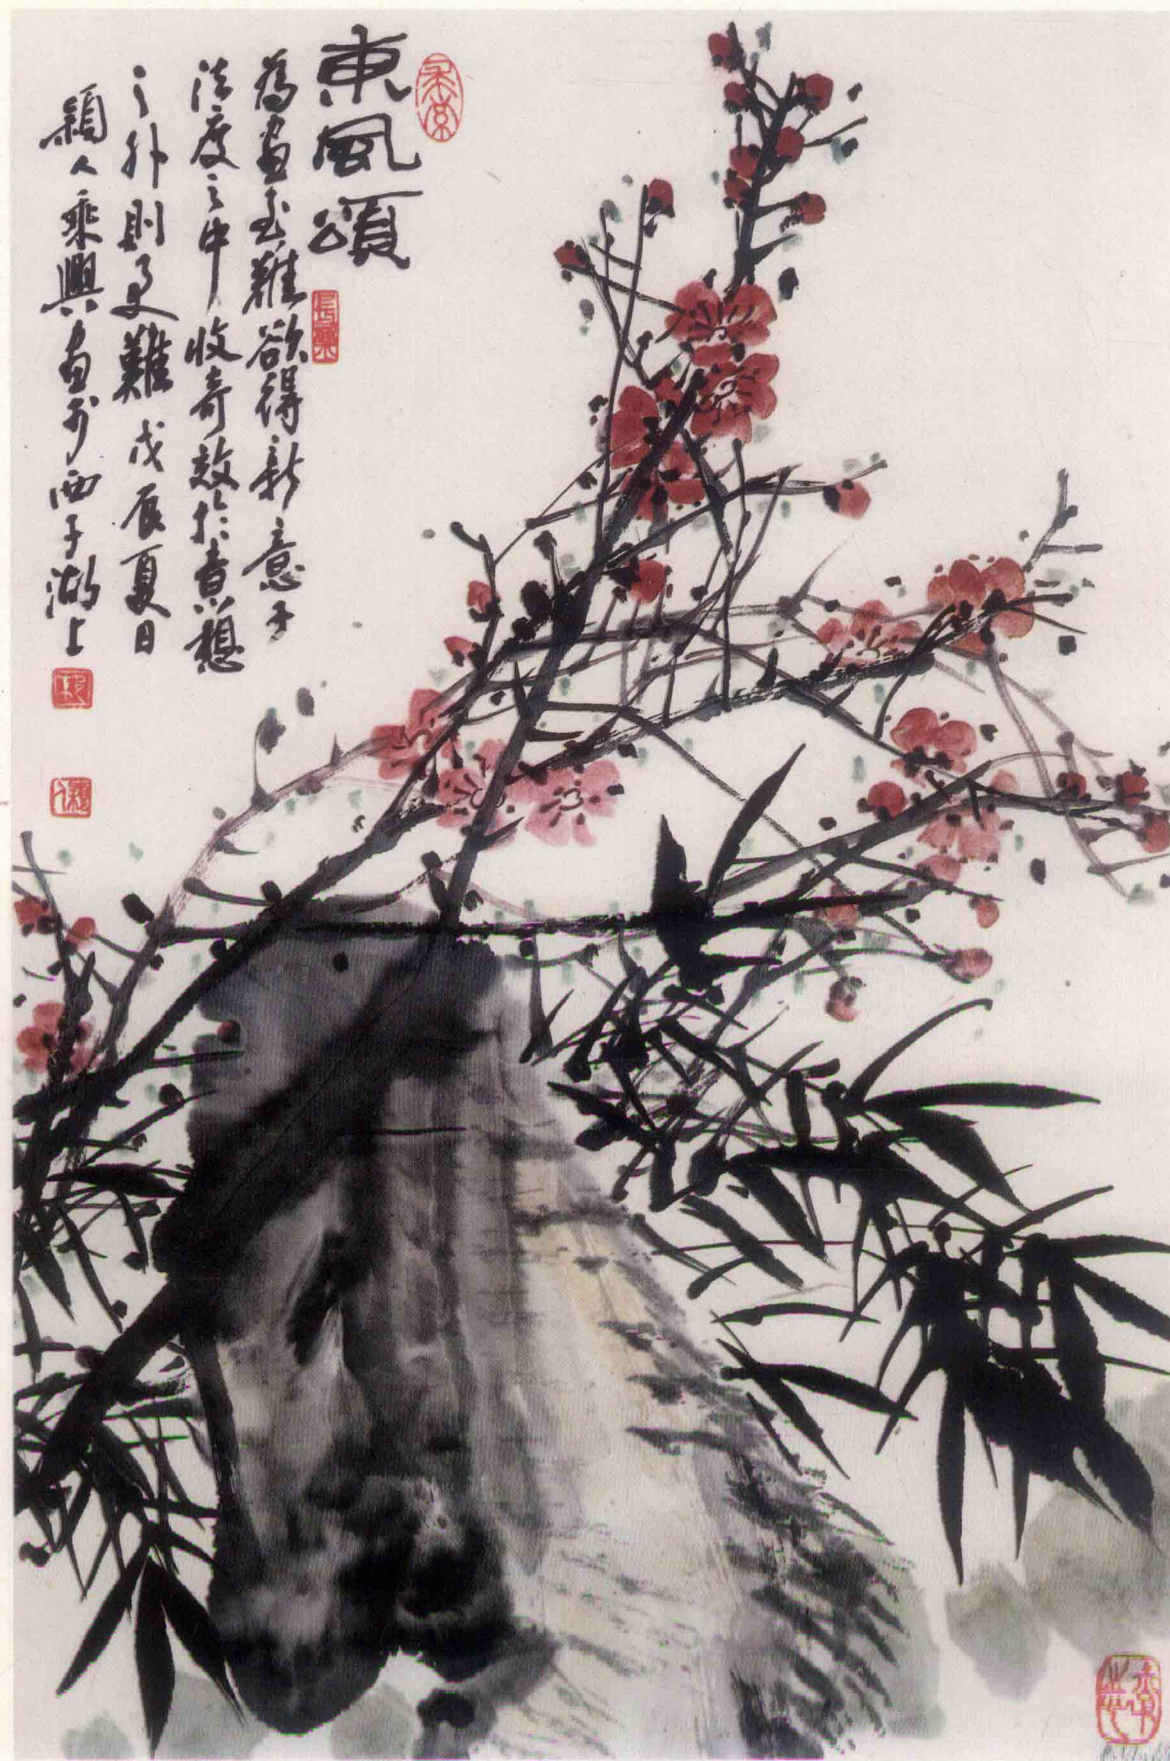 東風頌
為畫至難欲得新意于
法度之中收奇效於意想
之外則更難戊辰夏日
穎人乘興畫於西子湖上
長樂